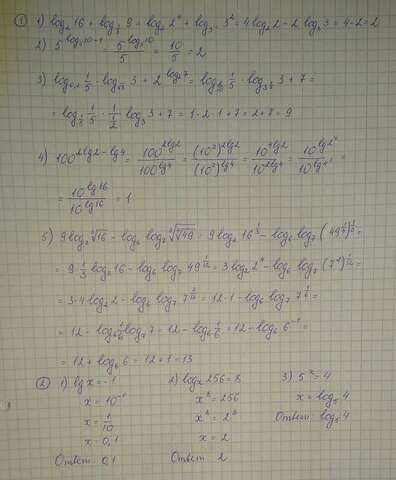 ① 1) log₂ 16 + log_{1/3} 9 = log₂ 2⁴ + log_{3⁻¹} 3² = 4 log₂ 2 - 2 log₃ 3 = 4 - 2 = 2
2) 5^{log₅ 10 - 1} = 5^{log₅ 10}/5 = 10/5 = 2
3) log_{0,2} 1/5 · log_{√3} 3 + 2^{log₂ 7} = log_{1/5} 1/5 · log_{3^{1/2}} 3 + 7 =
= log_{1/5} 1/5 · 1/(1/2) log₃ 3 + 7 = 1 · 2 · 1 + 7 = 2 + 7 = 9
4) 100^{2lg2 - lg4} = 100^{2lg2}/100^{lg4} = (10²)^{2lg2}/(10²)^{lg4} = 10^{4lg2}/10^{2lg4} = 10^{lg2⁴}/10^{lg4²} =
= 10^{lg16}/10^{lg16} = 1
5) 9 log₂ ∛16 - log₆ log₇ ⁶√√49 = 9 log₂ 16^{1/3} - log₆ log₇ (49^{1/2})^{1/6} =
= 9 · 1/3 log₂ 16 - log₆ log₇ 49^{1/12} = 3 log₂ 2⁴ - log₆ log₇ (7²)^{1/12} =
= 3 · 4 log₂ 2 - log₆ log₇ 7^{2/12} = 12 · 1 - log₆ log₇ 7^{1/6} =
= 12 - log₆ 1/6 log₇ 7 = 12 - log₆ 1/6 = 12 - log₆ 6⁻¹ =
= 12 + log₆ 6 = 12 + 1 = 13
② 1) lg x = -1
x = 10⁻¹
x = 1/10
x = 0,1
Ответ: 0,1
2) logₓ 256 = 8
x⁸ = 256
x⁸ = 2⁸
x = 2
Ответ: 2
3) 5ˣ = 4
x = log₅ 4
Ответ: log₅ 4